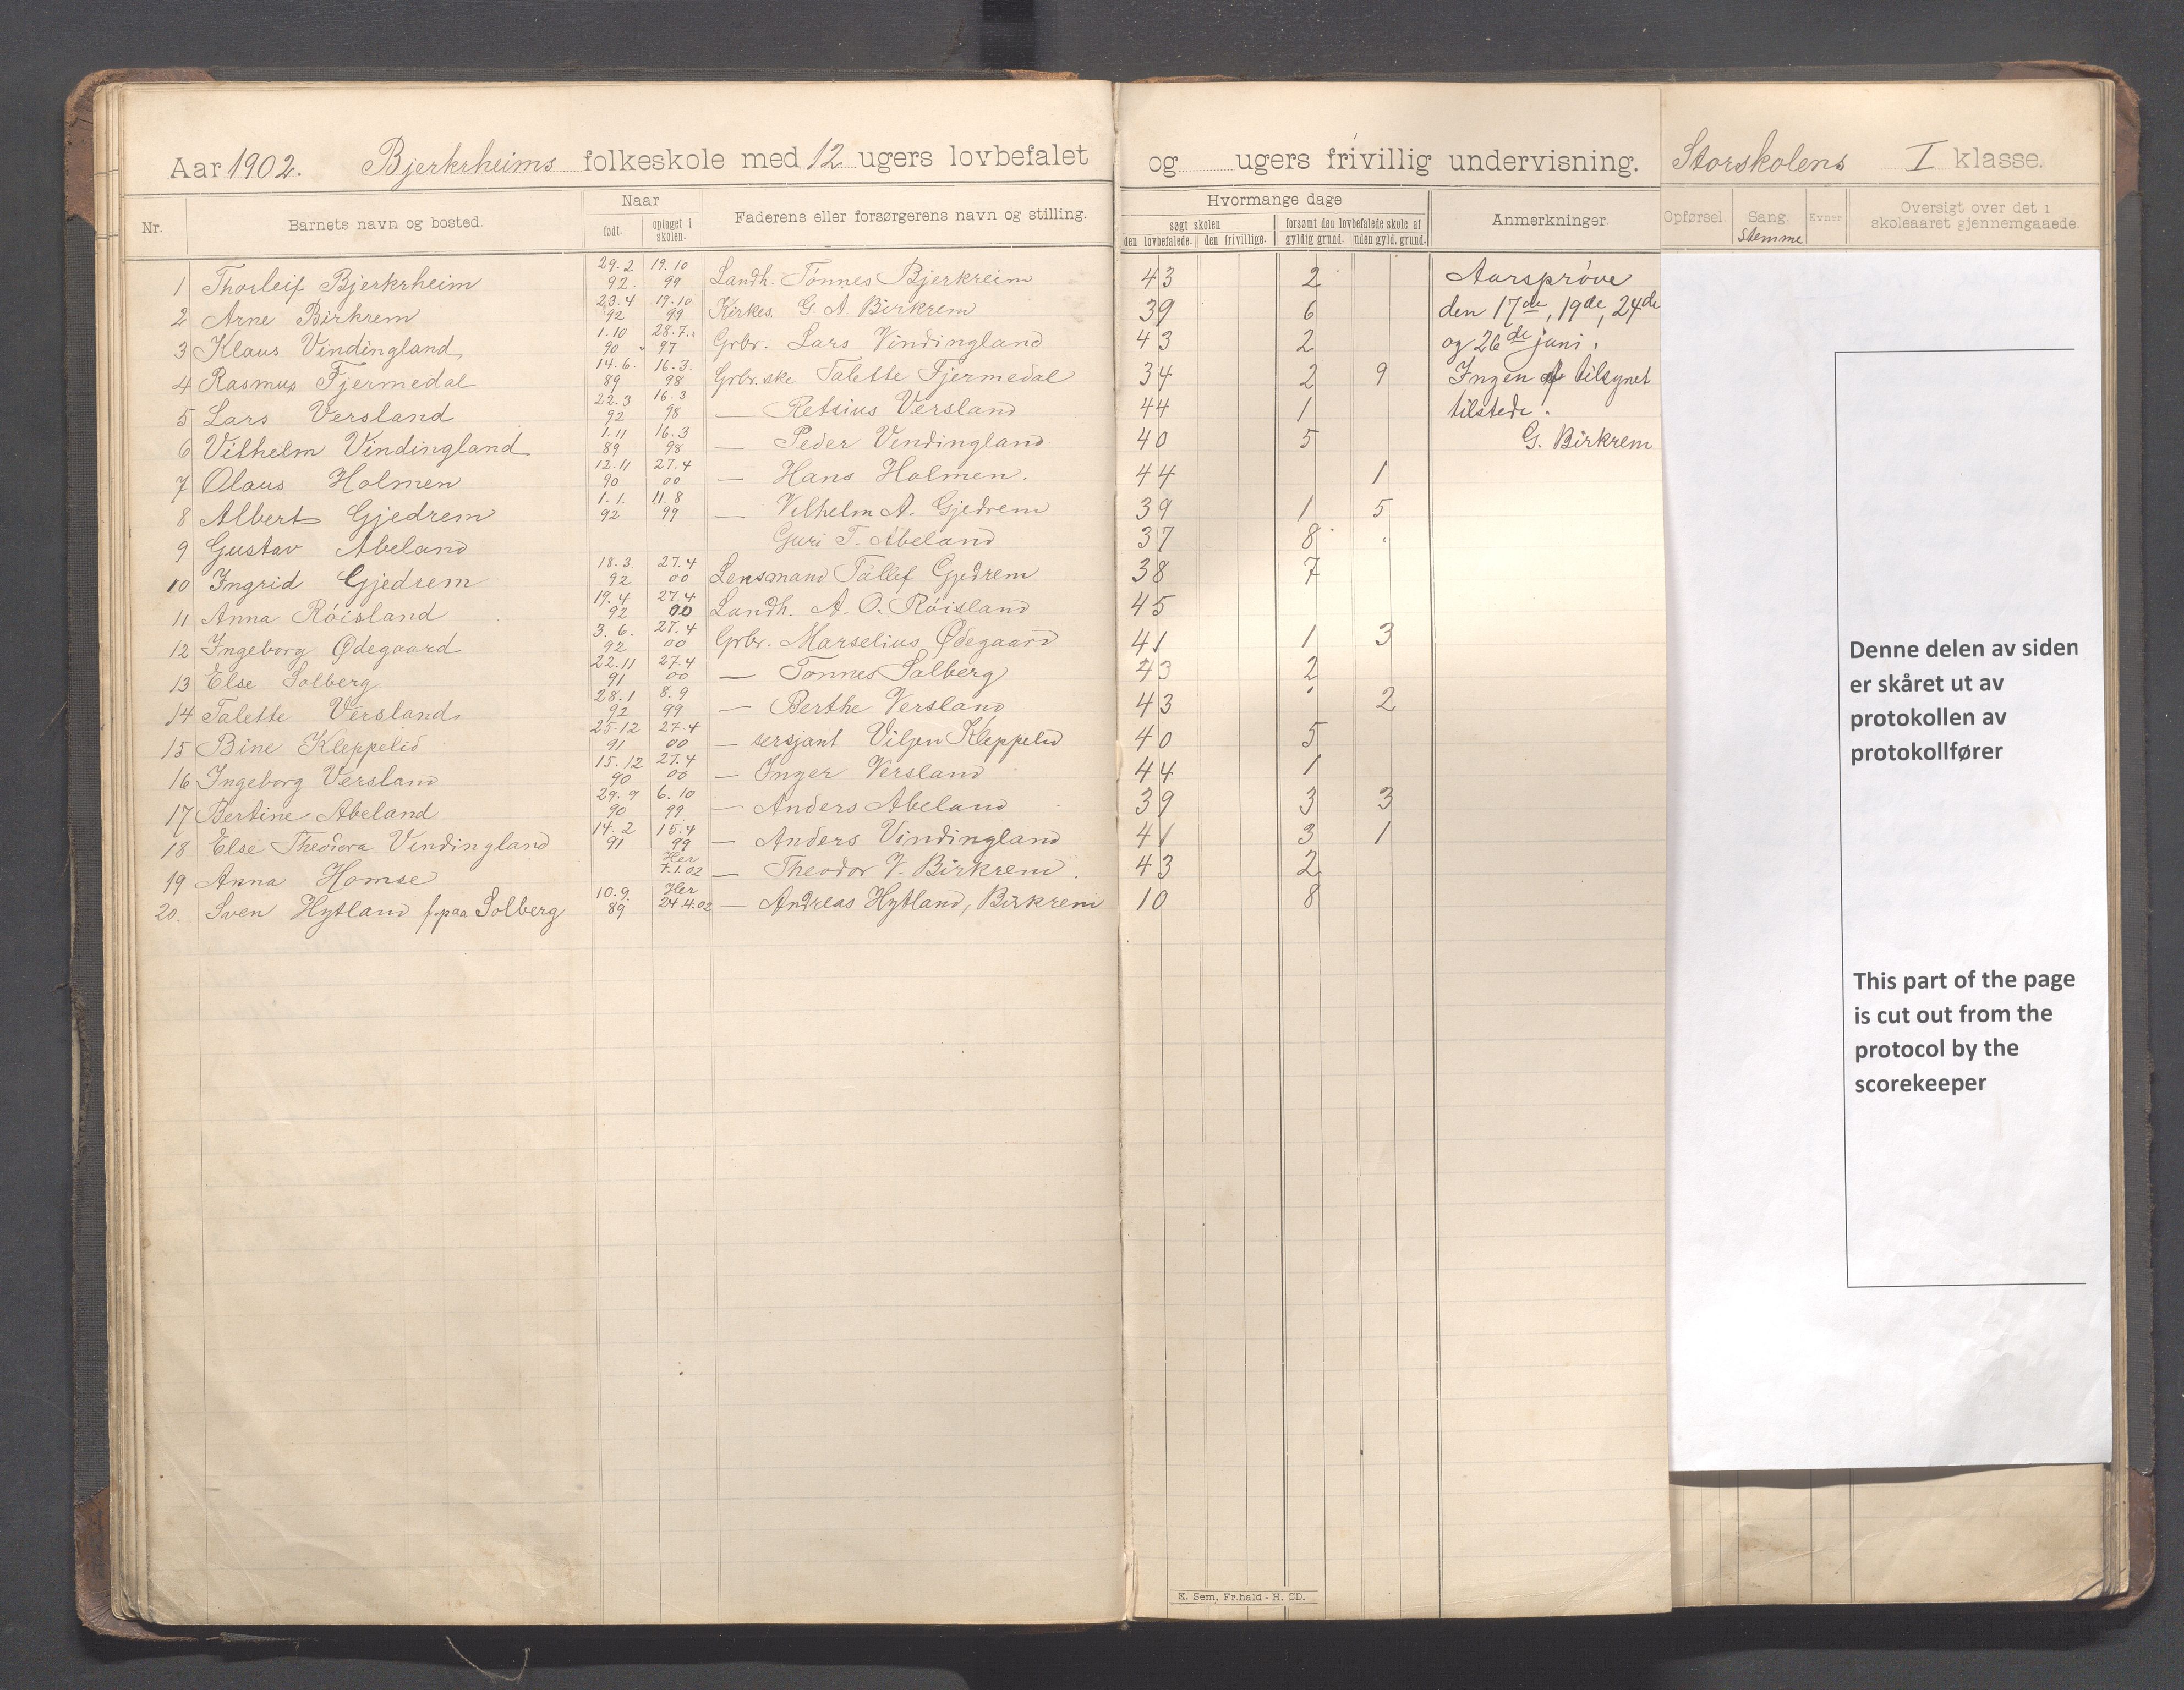 Aar 1902. Bjerkrheims folkeskole med 12 ugers lovbefalet og ugers frivillig undervisning. Storskolens I klasse.
Nr. Barnets navn og bosted. Naar født. optaget i skolen. Faderens eller forsørgerens navn og stilling. Hvormange dage søgt skolen den lovbefalede. den frivillige. forsømt den lovbefalede skole af gyldig grund. uden gyld. grund. Anmerkninger. Opførsel. Sang. Stemme Evner Oversigt over det i skoleaaret gjennemgaaede.
1 Thorleif Bjerkrheim 29.2 92 19.10 99 Landh. Tønnes Bjerkreim 43 2 Aarsprøve
2 Arne Birkrem 23.4 92 19.10 99 Kirkes. G. A. Birkrem 39 6 den 17de, 19de, 24de
3 Klaus Vindingland 1.10 90 28.7. 97 Grbr. Lars Vindingland 43 2 og 26de juni.
4 Rasmus Fjermedal 14.6. 89 16.3. 98 Grbr.ske Talette Fjermedal 34 2 9 Ingen af tilsynet
5 Lars Versland 22.3 92 16.3 98 — Retsius Versland 44 1 tilstede.
6 Vilhelm Vindingland 1.11 89 16.3 98 — Peder Vindingland 40 5 G. Birkrem
7 Olaus Holmen 12.11 90 27.4 00 — Hans Holmen. 44 1
8 Albert Gjedrem 1.1. 92 11.8 99 — Vilhelm A. Gjedrem 39 1 5
9 Gustav Abeland Guri T. Abeland 37 8
10 Ingrid Gjedrem 18.3. 92 27.4 00 Lensmand Tållef Gjedrem 38 7
11 Anna Røisland 19.4 92 27.4 00 Landh. A. O. Røisland 45
12 Ingeborg Ødegaard 3.6. 92 27.4 00 Grbr. Marselius Ødegaard 41 1 3
13 Else Solberg. 22.11 91 27.4 00 — Tønnes Solberg 43 2
14 Talette Versland 28.1 92 8.9 99 — Berthe Versland 43 2
15 Bine Kleppelid 25.12 91 27.4 00 — sersjant Viljen Kleppelid 40 5
16 Ingeborg Versland 15.12 90 27.4 00 — Inger Versland 44 1
17 Bertine Abeland 29.9 90 6.10 99 — Anders Abeland 39 3 3
18 Else Theodora Vindingland 14.2 91 15.4 99 — Anders Vindingland 41 3 1
19 Anna Homse Her 7.1.02 — Theodor V. Birkrem. 43 2
20. Sven Hytland f.paa Solberg 10.9. 89 Her 24.4.02 — Andreas Hytland, Birkrem 10 8
Denne delen av siden
er skåret ut av
protokollen av
protokollfører
This part of the page
is cut out from the
protocol by the
scorekeeper
E. Sem, Fr.hald - H. CD.